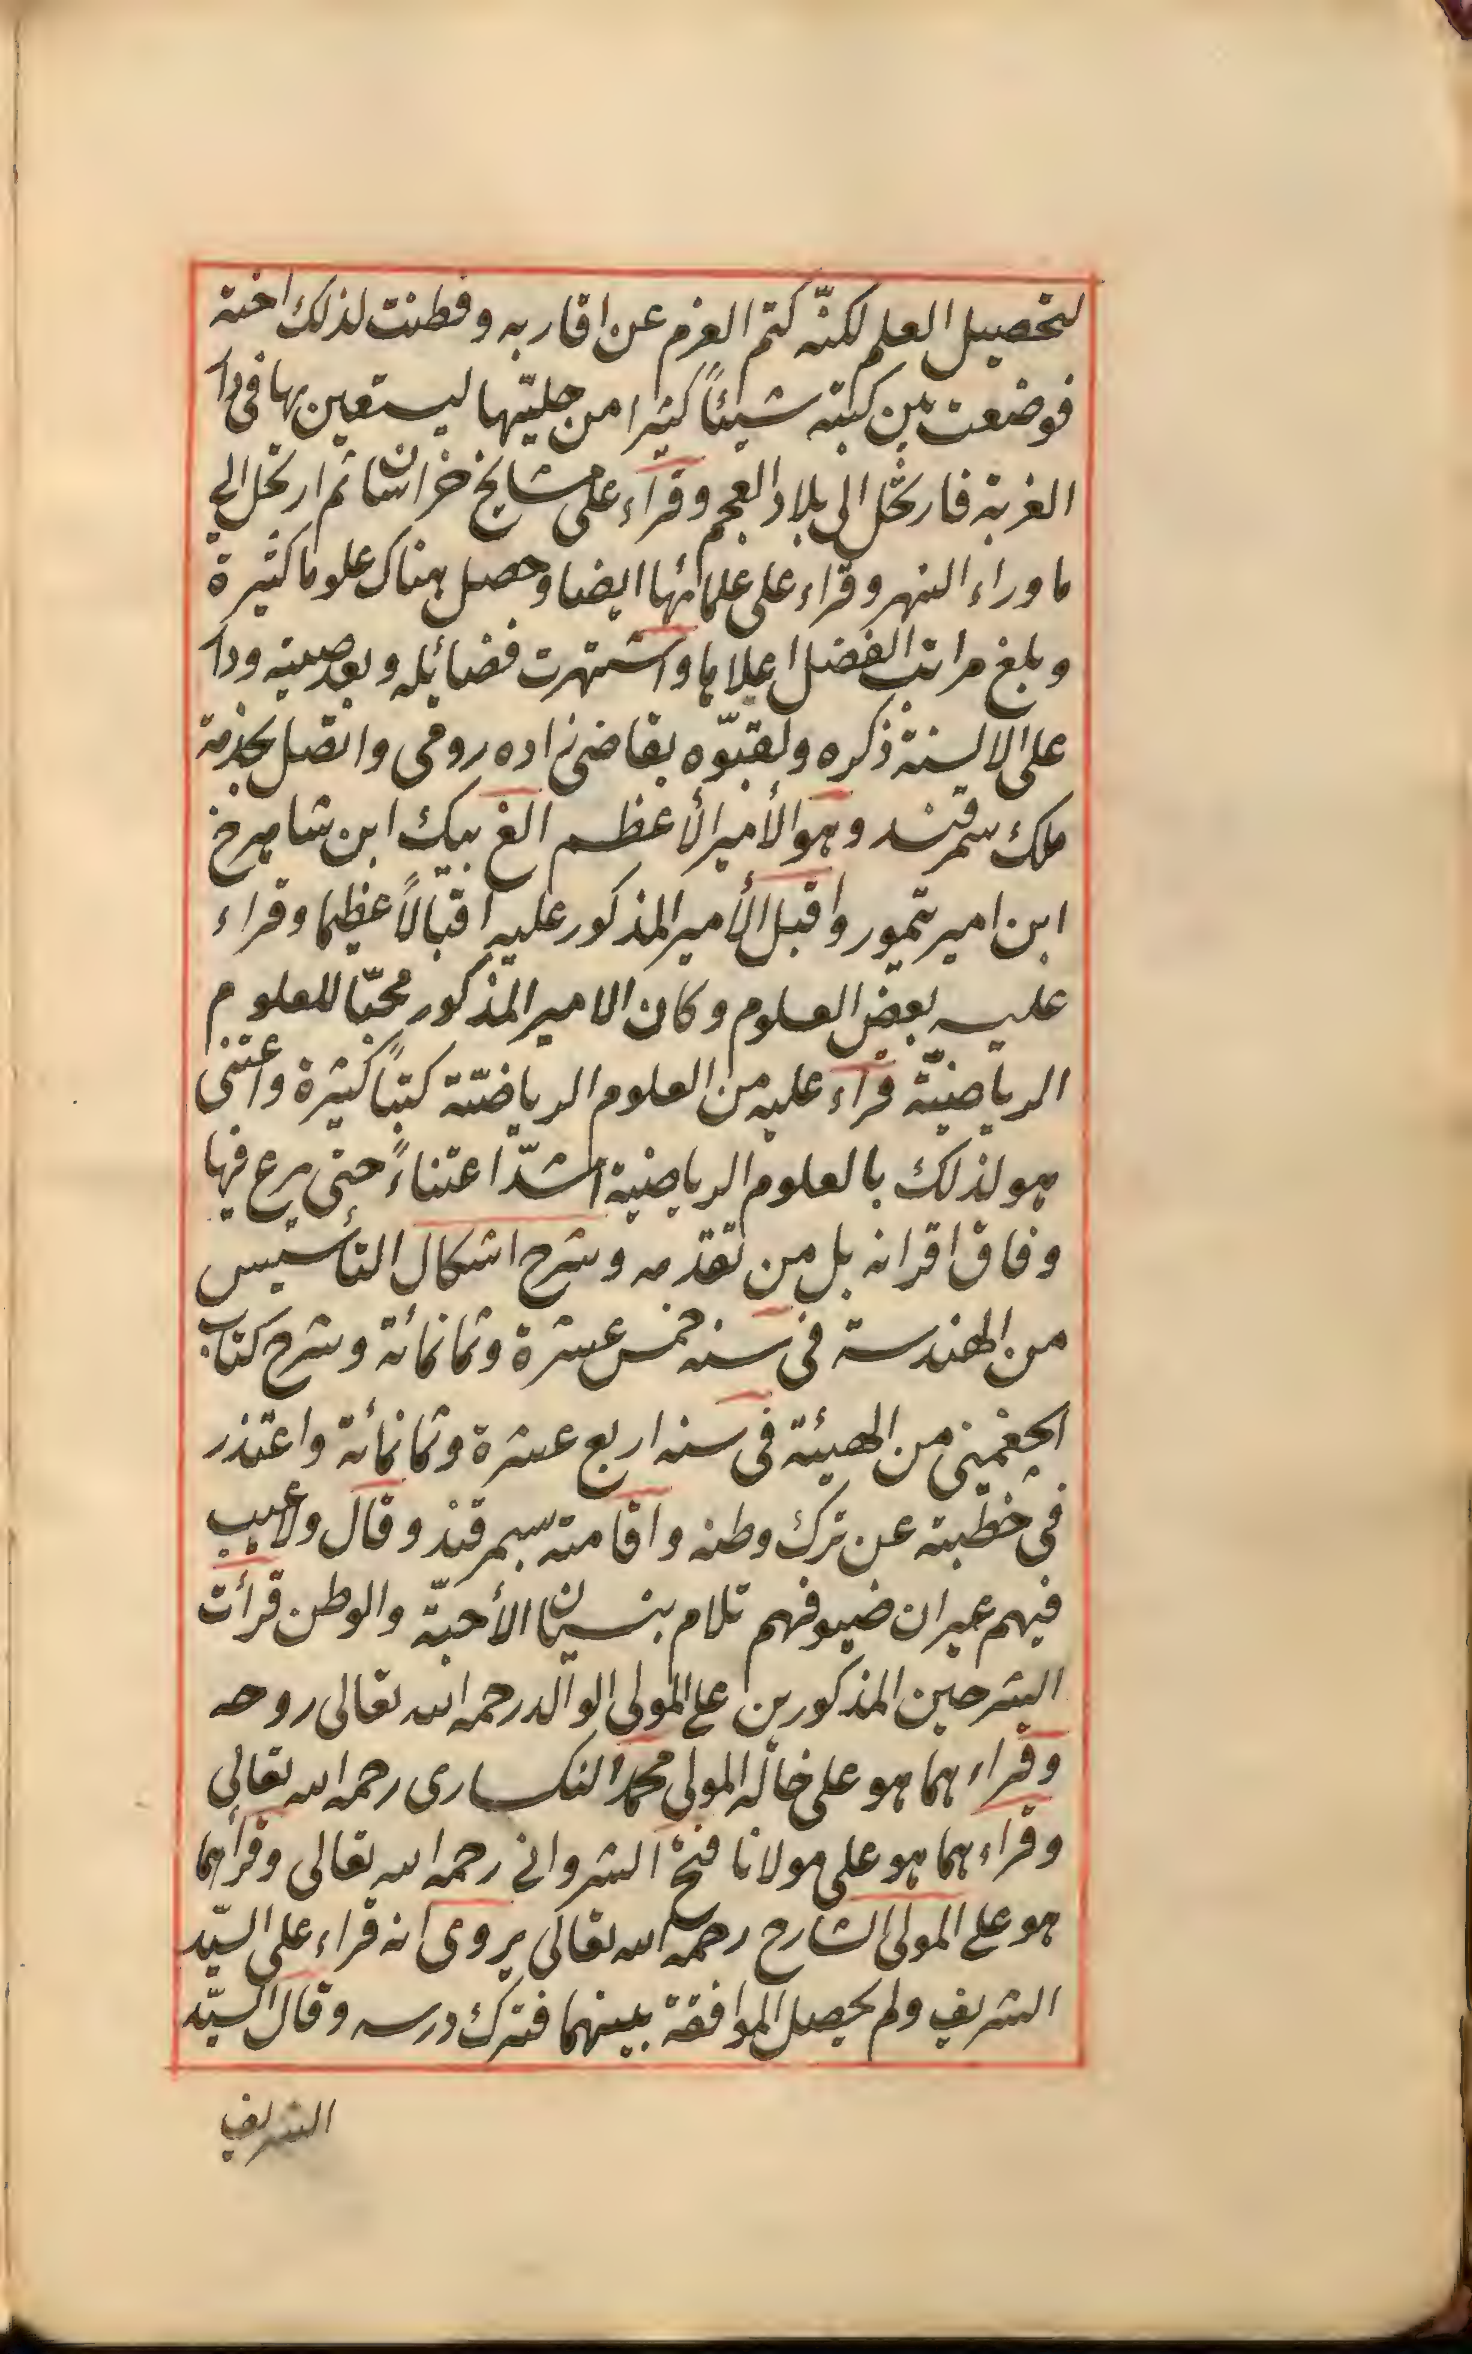 لتحصيل العلم لكنّه كتم العزم عن اقاربه وفطنت لذلك اخته
فوضعت بين كتبه شيئاً كثيرا من حليّتها ليستعين بها فى دا
الغربة فارتحل الى بلاد العجم وقراء على مشايخ خراسان ثم ارتحل الى
ما وراء النهر وقراء على علمائها ايضا وحصل هناك علوما كثيرة
وبلغ مراتب الفضل اعلاها واشتهرت فضائله وبعد صيته ودا
على الالسنة ذكره ولقبّوه بقاضى زاده رومى واتصل بخدمة
ملك سمرقند وهو الأمير الأعظم الغ بيك ابن شاهرخ
ابن امير تيمور واقبل الأمير المذكور عليه اقبالاً عظيما وقراء
عليه بعض العلوم وكان الامير المذكور محبّا للعلوم
الرياضيّة قراء عليه من العلوم الرياضيّة كتباً كثيرة واعتنى
هو لذلك بالعلوم الرياضية اشدّ اعتناءً حتى برع فيها
وفاق اقرانه بل من تقدمه وشرح اشكال التأسيس
من الهندسة فى سنه خمس عشرة وثمانمائة وشرح كتاب
الجغمينى من الهيئة فى سنه اربع عشرة وثمانمائة واعتذر
فى خطبته عن ترك وطنه واقامته بسمرقند وقال ولاعيب
فيهم غير ان ضيوفهم تلام بنسيان الأحبّة والوطن قرأت
الشرحين المذكورين على المولى الوالد رحمه الله تعالى روحه
وقراءهما هو على خاله المولى محمد النكسارى رحمه الله تعالى
وقراءهما هو على مولانا فتح الشروانى رحمه الله تعالى وقرأهما
هو على المولى الشارح رحمه الله تعالى يروى انه قراء على السيّد
الشريف ولم يحصل الموافقة بينهما فترك درسه وقال السيّد
الشريف